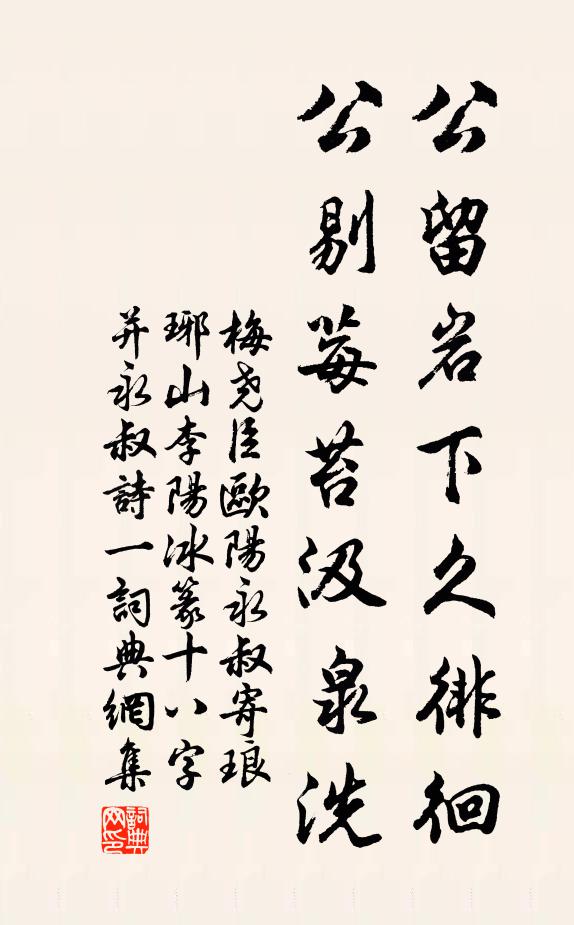 公留岩下久徘徊
公剔莓苔汲泉洗
梅尧臣歐陽永叔寄琅
琊山李陽冰篆十八字
并永叔詩一詞典網集
詞典網印